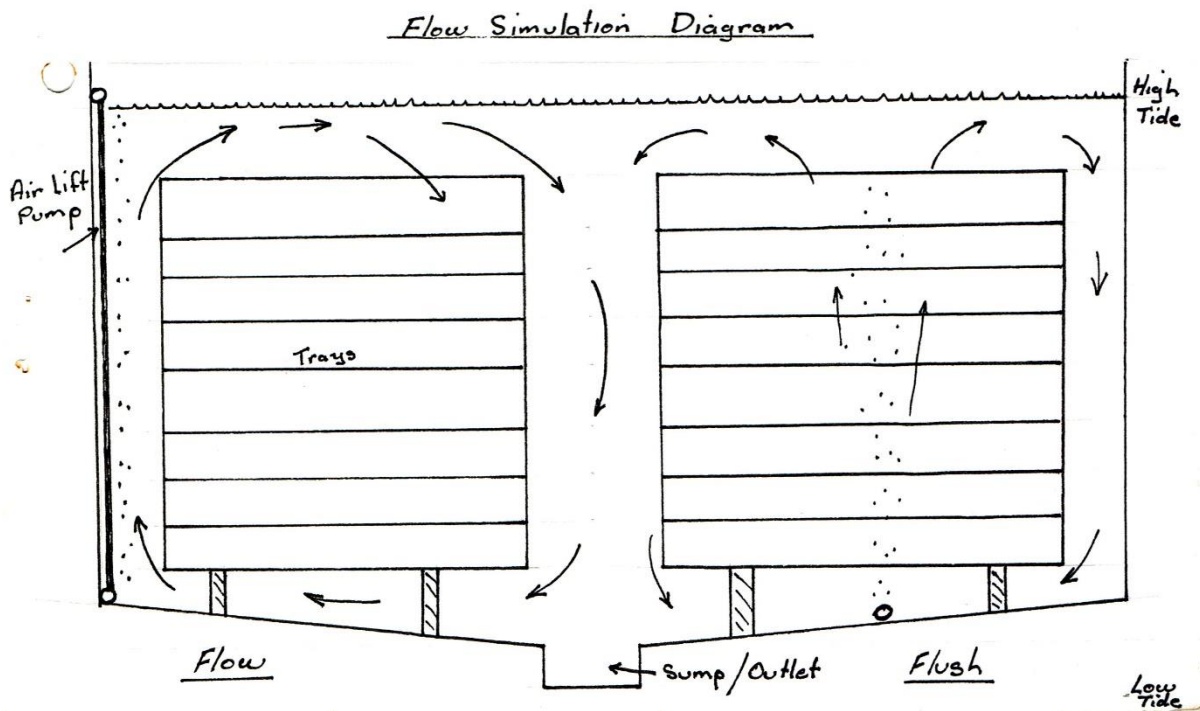 Flow Simulation Diagram
High
Tide
Air Lift
Pump
Trays
Flow
Sump/Outlet
Flush
Low
Tide